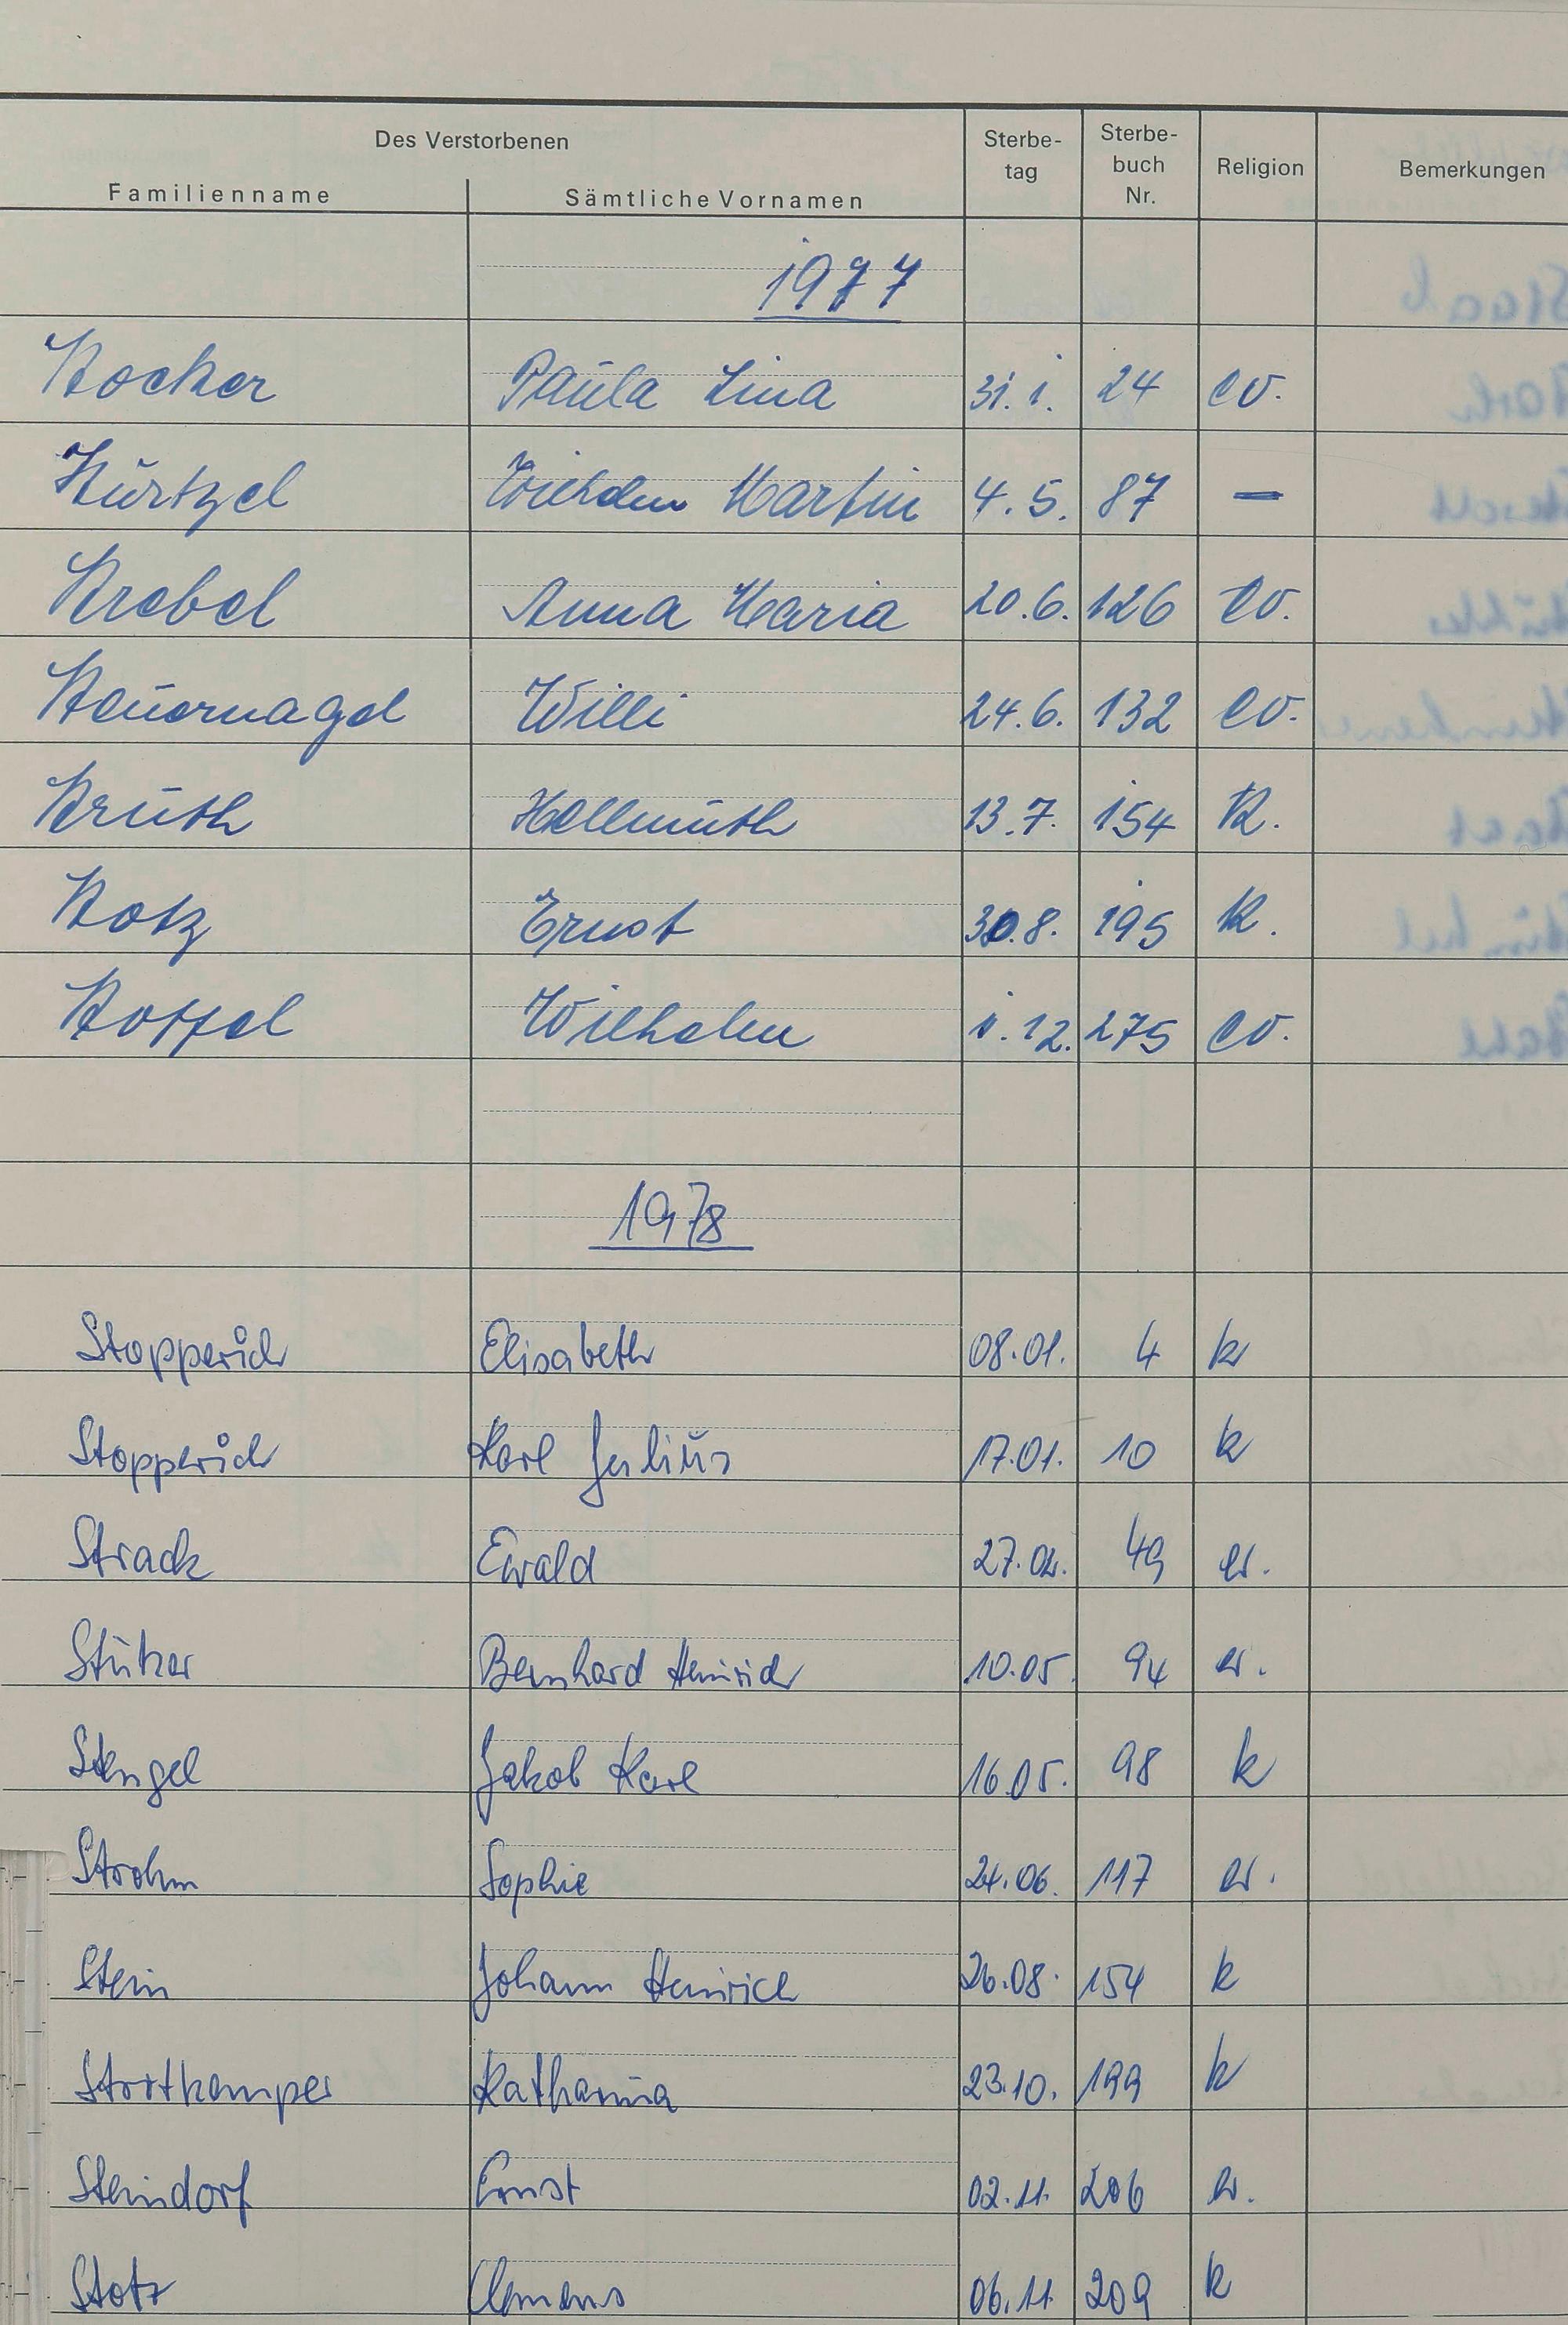 Des Verstorbenen
Familienname Sämtliche Vornamen
Sterbe-
tag
Sterbe-
buch
Nr.
Religion
Bemerkungen
1977
Stocker Paula Lina 31.1. 24 ev.
Stürtzel Wilhelm Martin 4.5. 87 —
Strebel Anna Maria 20.6. 126 ev.
Steuernagel Willi 24.6. 132 ev.
Struth Hellmuth 13.7. 154 k.
Stotz Ernst 30.8. 195 k.
Stoffel Wilhelm 1.12. 275 ev.
1978
Stopperich Elisabeth 08.01. 4 k
Stopperich Karl Julius 17.01. 10 k
Strack Ewald 27.02. 49 ev.
Bernhard Heinrich 10.05. 94 ev.
Stengel Jakob Karl 16.05. 98 k
Strohm Sophie 24.06. 117 ev.
Stein Johann Heinrich 26.08. 154 k
Stortkemper Katharina 23.10. 199 k
Steindorf Ernst 02.11. 206 ev.
Stotz Clemens 06.11. 209 k